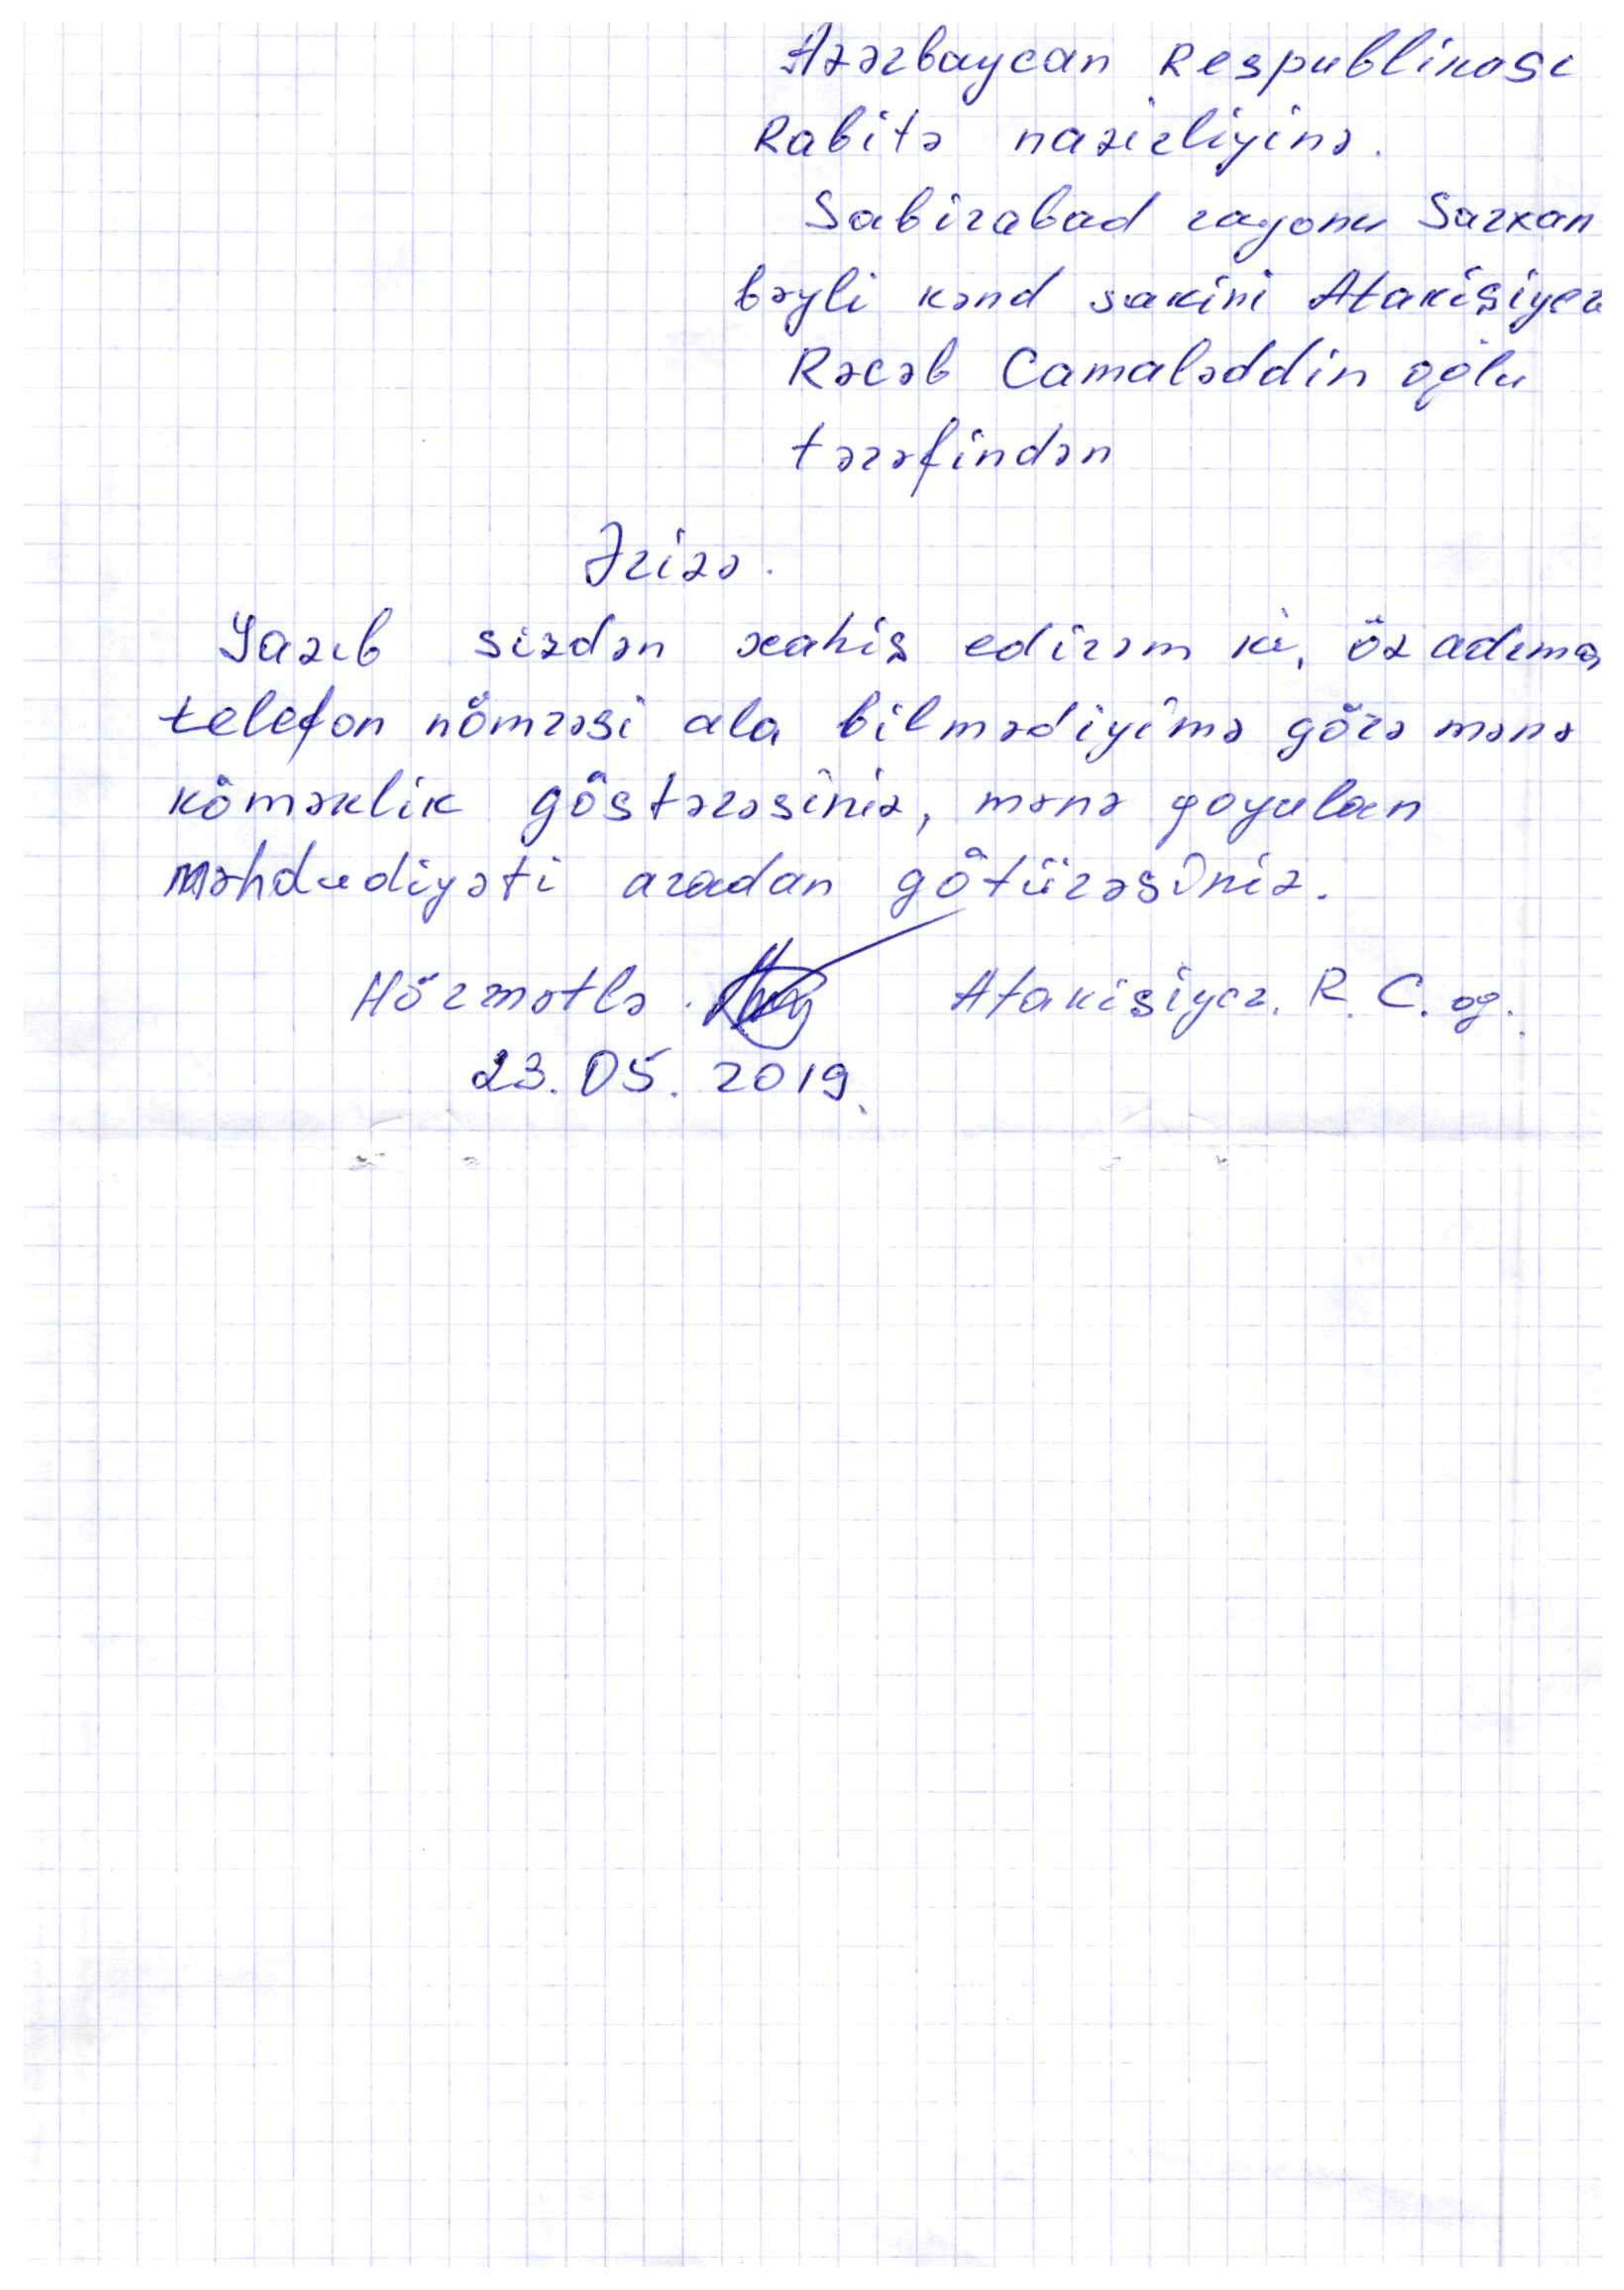 Azərbaycan Respublikası
Rabitə nazirliyinə.
Sabirabad rayonu Sarxan
bəyli kənd sakini Atakişiyev
Rəcəb Camaləddin oğlu
tərəfindən
Ərizə.
Yazıb sizdən xahiş edirəm ki, öz adıma
telefon nömrəsi ala bilmədiyimə görə mənə
köməklik göstərəsiniz, mənə qoyulan
məhdudiyəti aradan götürəsiniz.
Hörmətlə. Atakişiyev. R. C. oğ.
23.05.2019.